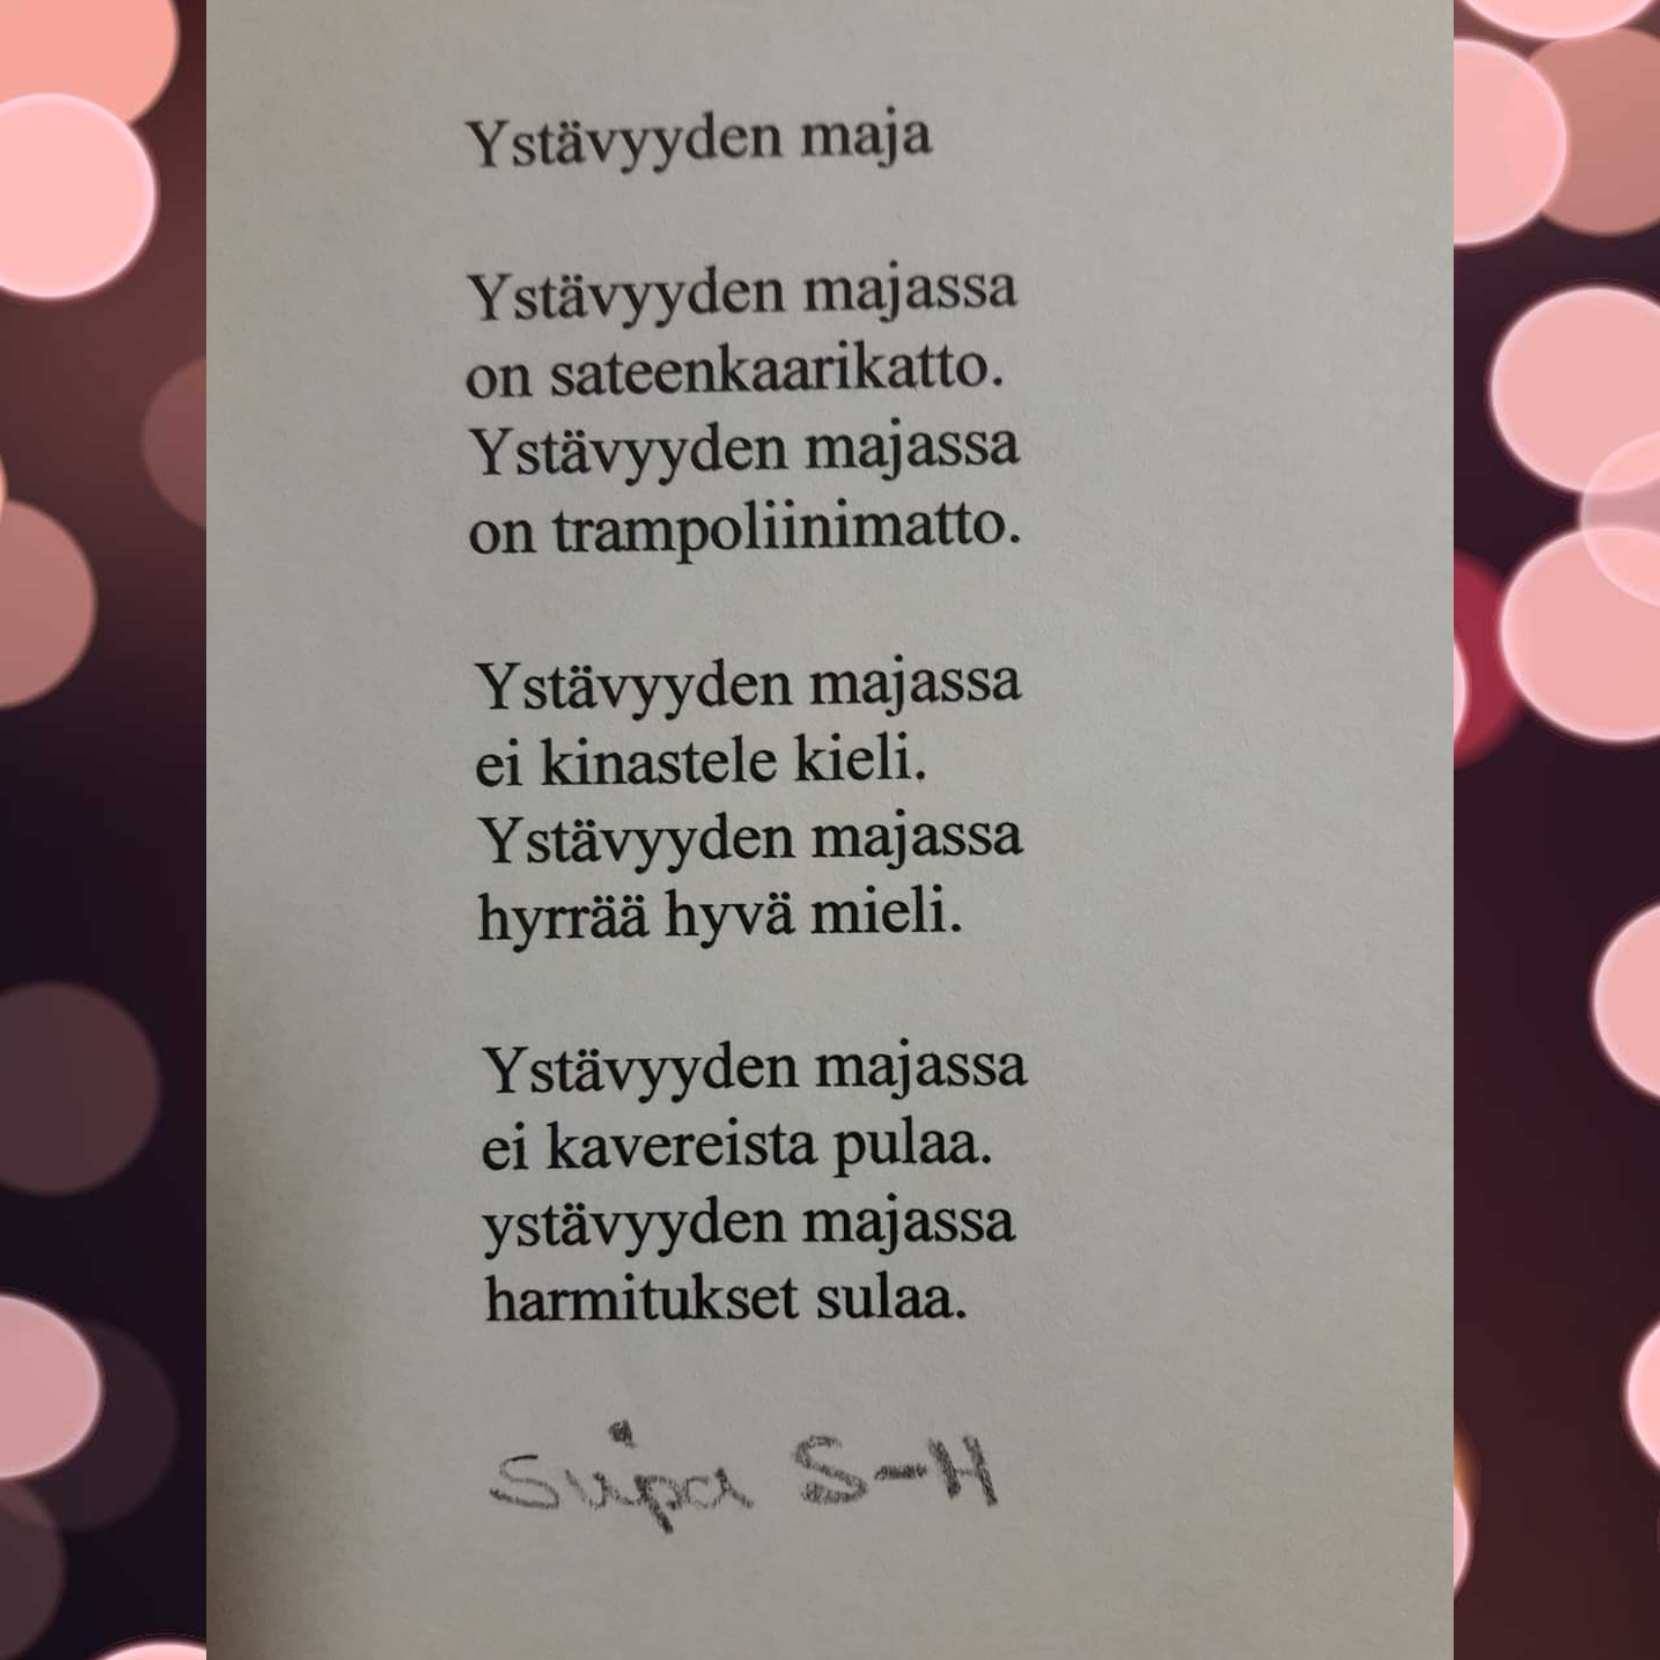 Ystävyyden maja
Ystävyyden majassa
on sateenkaarikatto.
Ystävyyden majassa
on trampoliinimatto.
Ystävyyden majassa
ei kinastele kieli.
Ystävyyden majassa
hyrrää hyvä mieli.
Ystävyyden majassa
ei kavereista pulaa.
ystävyyden majassa
harmitukset sulaa.
S-H